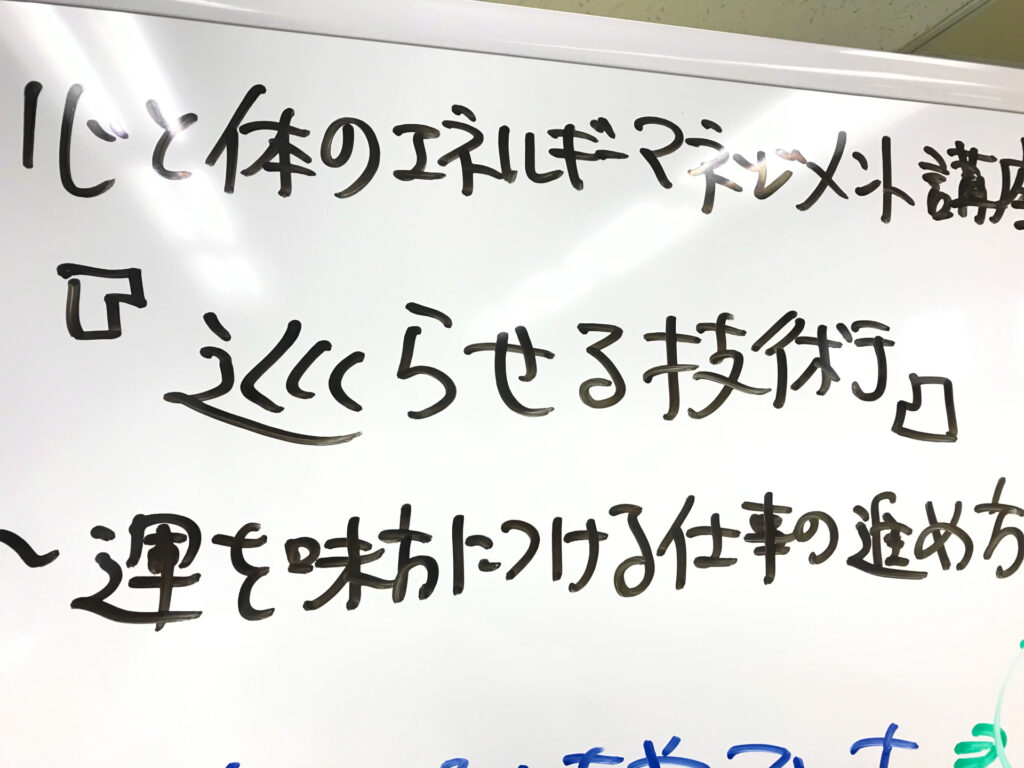 心と体のエネルギーマネジメント講座
『巡らせる技術』
~運を味方につける仕事の進め方